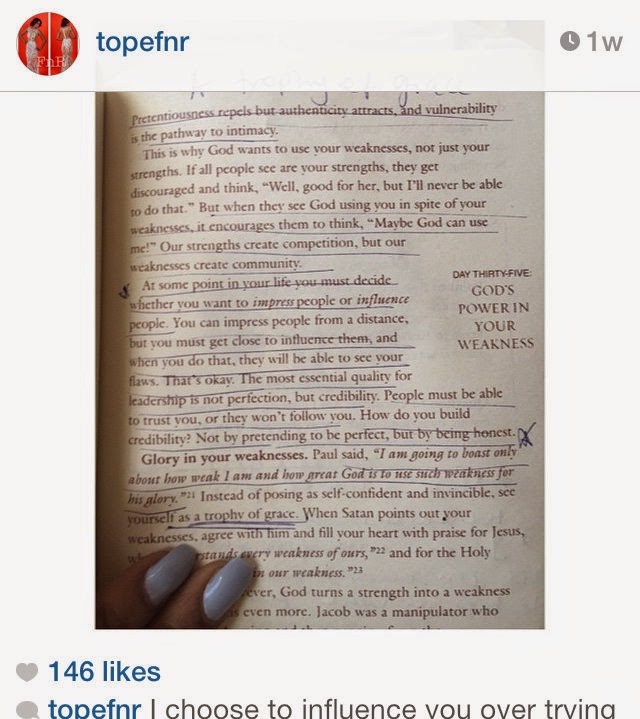 topefnr
1w
FnR
A trophy of grace
Pretentiousness repels but authenticity attracts, and vulnerability
is the pathway to intimacy.
This is why God wants to use your weaknesses, not just your
strengths. If all people see are your strengths, they get
discouraged and think, “Well, good for her, but I’ll never be able
to do that.” But when they see God using you in spite of your
weaknesses, it encourages them to think, “Maybe God can use
me!” Our strengths create competition, but our
weaknesses create community.
At some point in your life you must decide
whether you want to impress people or influence
people. You can impress people from a distance,
but you must get close to influence them, and
when you do that, they will be able to see your
flaws. That’s okay. The most essential quality for
leadership is not perfection, but credibility. People must be able
to trust you, or they won’t follow you. How do you build
credibility? Not by pretending to be perfect, but by being honest.
DAY THIRTY-FIVE:
GOD’S
POWER IN
YOUR
WEAKNESS
Glory in your weaknesses. Paul said, “I am going to boast only
about how weak I am and how great God is to use such weakness for
his glory.”21 Instead of posing as self-confident and invincible, see
yourself as a trophy of grace. When Satan points out your
weaknesses, agree with him and fill your heart with praise for Jesus,
every weakness of ours,”22 and for the Holy
in our weakness.”23
God turns a strength into a weakness
even more. Jacob was a manipulator who
146 likes
topefnr I choose to influence you over trying